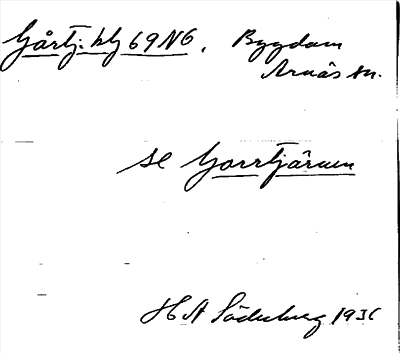 Gårtj: blg 69 NG. Bygdom
Arnäs sn.
se Gorrtjärnen
H A Söderberg 1936